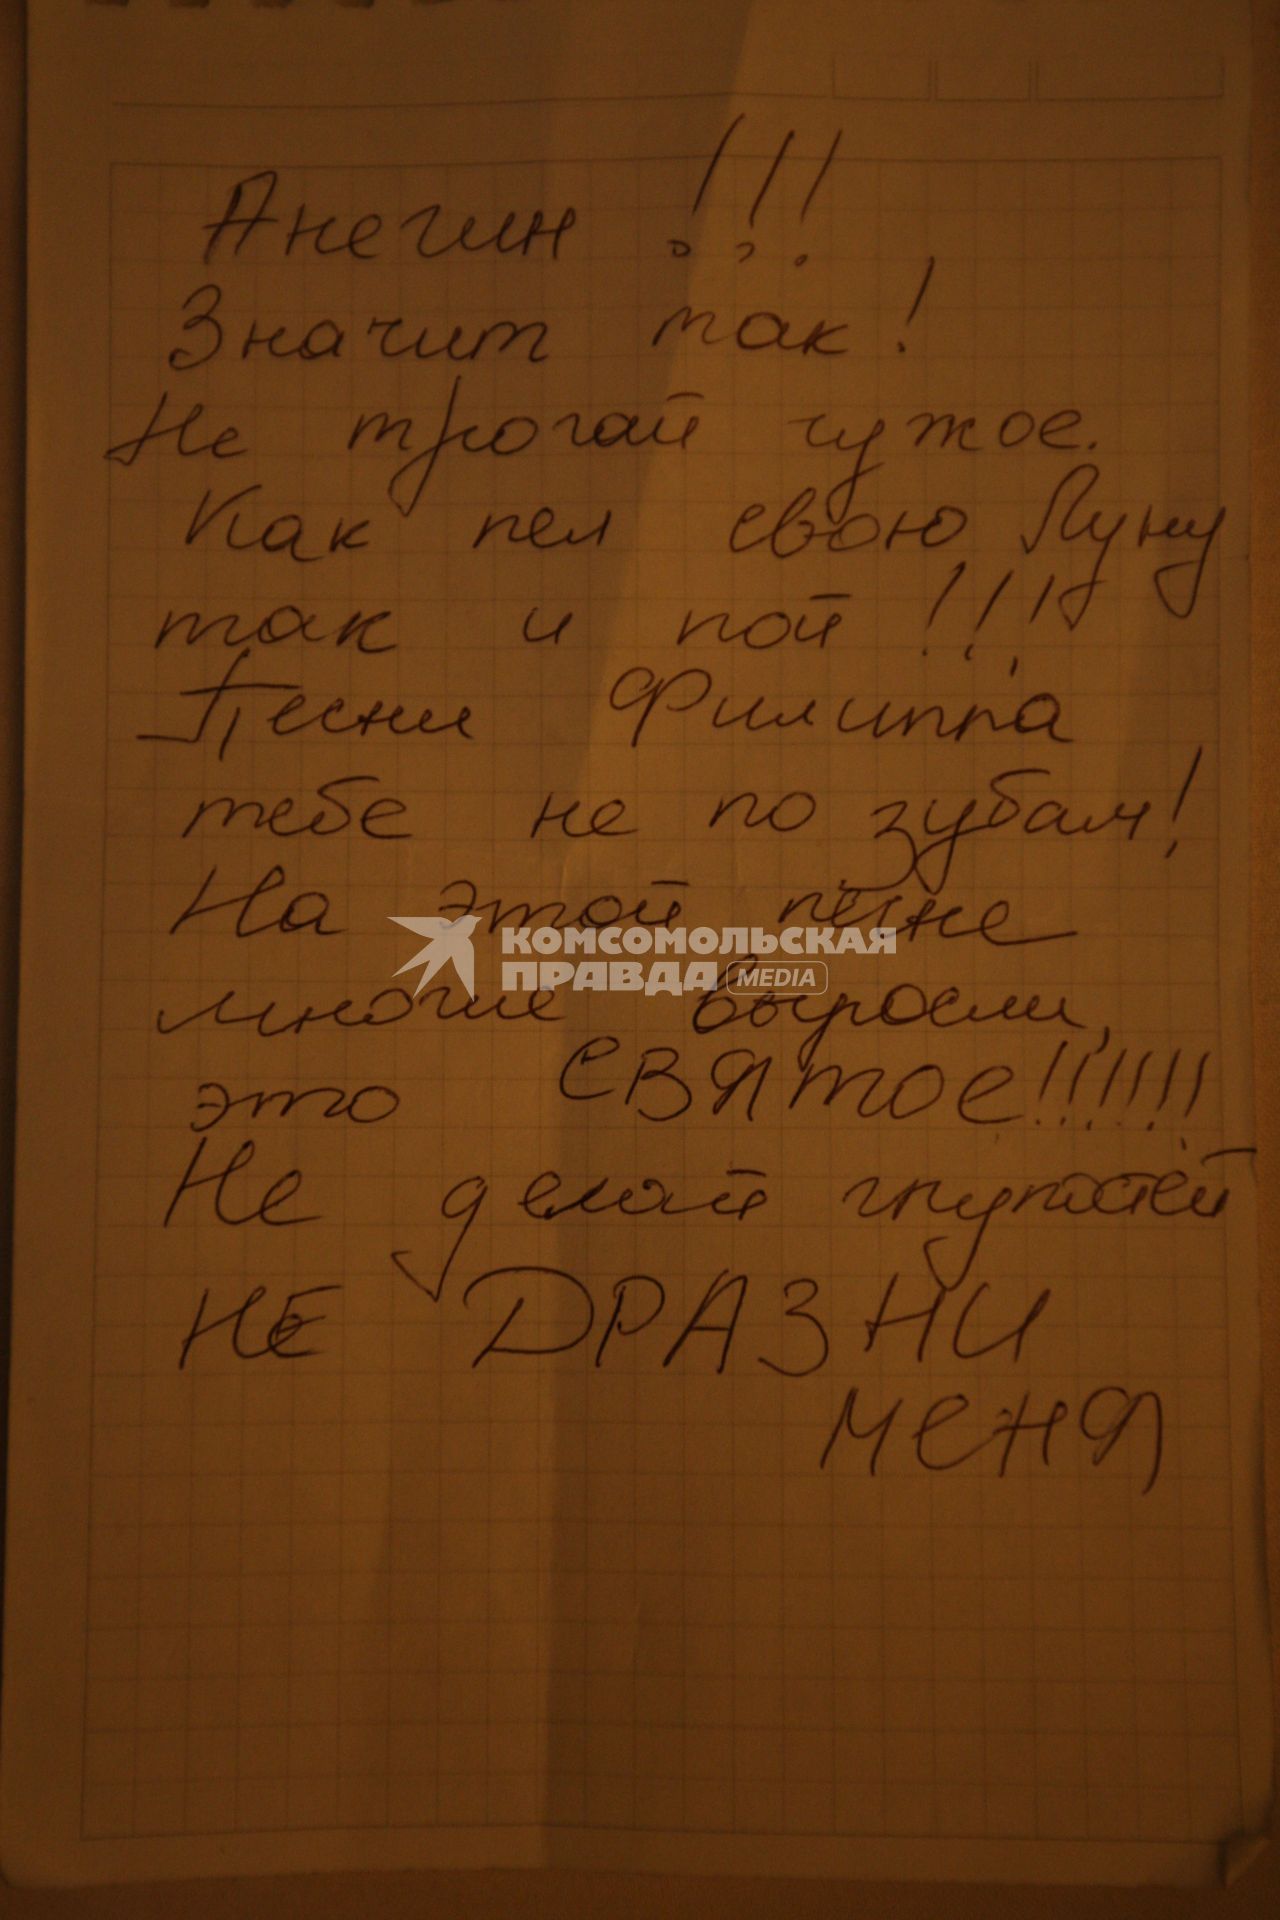 Анегин !!!
Значит так!
Не трогай чужое.
Как пел свою Луну
так и пой !!!
Песни Филиппа
тебе не по зубам!
На этой песне
КОМСОМОЛЬСКАЯ
ПРАВДА MEDIA
многие выросли,
это СВЯтое!!!!!!!
Не делай глупостей
НЕ ДРАЗНИ
меня